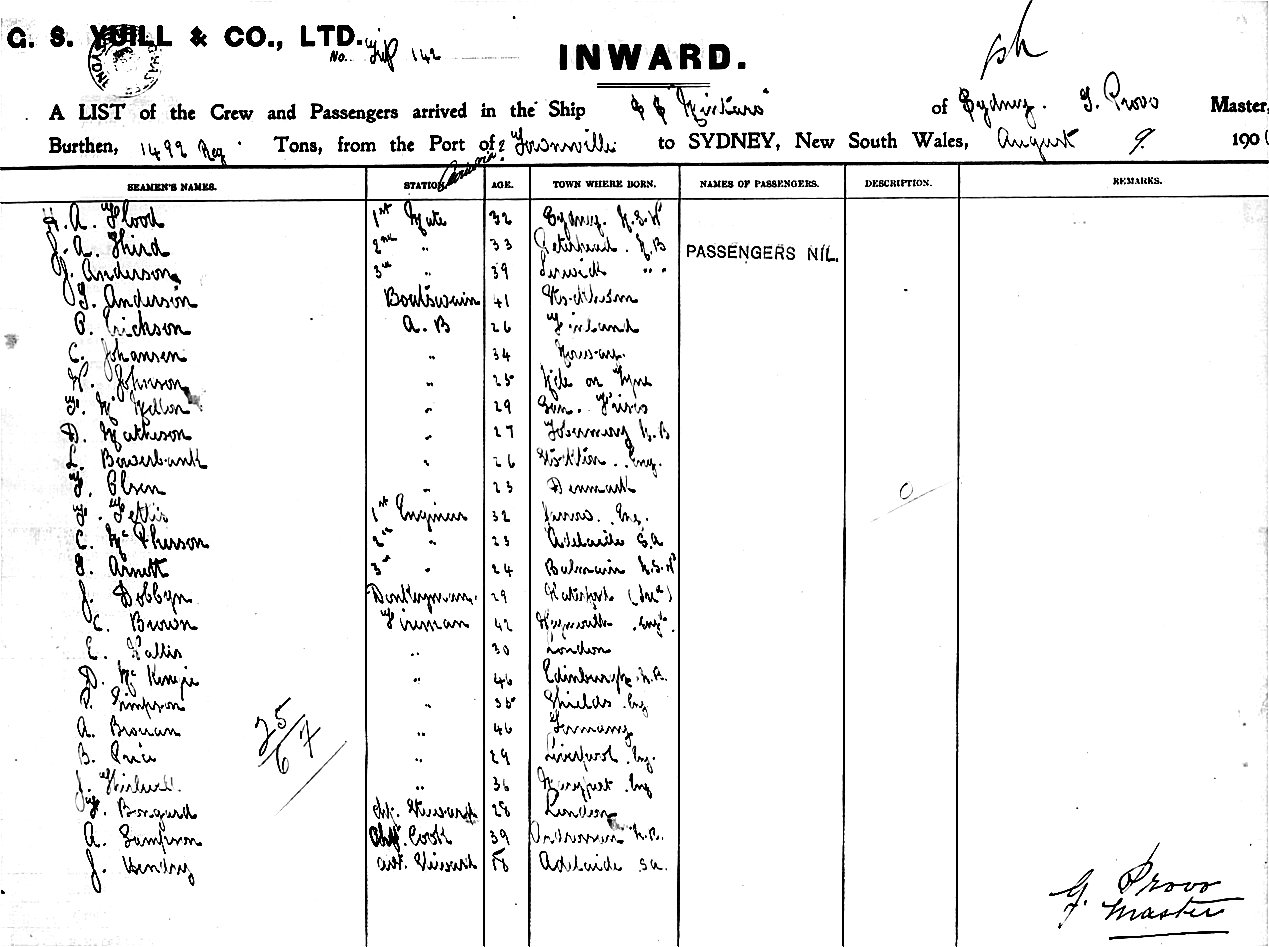 G. S. YUILL & CO., LTD.
No. 142
INWARD.
A LIST of the Crew and Passengers arrived in the Ship SS of Sydney. G. Provo Master,
Burthen, 1499 Reg Tons, from the Port of Townsville to SYDNEY, New South Wales, August 9. 190
SEAMEN'S NAMES. STATION. AGE. TOWN WHERE BORN. NAMES OF PASSENGERS. DESCRIPTION. REMARKS.
H. A. Flood 1st Mate 32 Sydney. N.S.W
J. A. Third 2nd " 33 Peterhead. N.B
PASSENGERS NIL.
J. Anderson 3rd " 39 Lerwick " "
Anderson Boatswain 41 Stockholm
P. Erickson A.B 26 Finland
C. Johansen " 34 Norway.
Johnson " 25 on Tyne
" 29
D. Matheson " 27 Tobermory N.B
Bowerbank " 26 Stockton. Eng.
Olsen " 23 Denmark
1st Engineer 32 Jarrow. Eng.
C. McPherson 2nd " 23 Adelaide S.A
Arnott 3rd " 24 Balmain N.S.W
J. Dobbyn Donkeyman. 29 Waterford
C. Brown Fireman 42 Weymouth Engd.
E. Wallis " 30 London
D. McKenzie " 46 Edinburgh N.B.
Simpson " 35 Shields. Eng
A. " 46 Germany
B. Price " 29 Liverpool. Eng.
J. " 36 Maryport Eng
25/67
Bongard chf. Steward 28 London
A. Sampson Chf. Cook 39 N.B.
J. Hendry asst. Steward 18 Adelaide SA.
G. Provo
Master